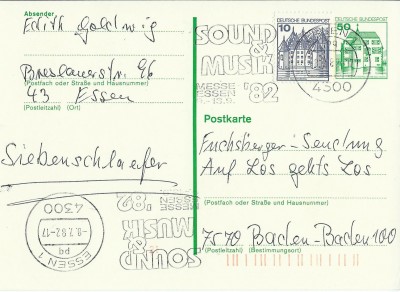 Absender
Edith Goldwig
Breslauerstr. 96
(Postfach oder Straße und Hausnummer)
43 Essen
(Postleitzahl) (Ort)
Siebenschlaefer
ESSEN 1
pq
-8.7.82-17
4300
SOUND
&
MUSIK
MESSE
ESSEN
'82
SOUND
&
MUSIK
MESSE
ESSEN
'82
4300
DEUTSCHE BUNDESPOST
10
DEUTSCHE BUNDESPOST
50
Postkarte
Fuchsberger-Sendung
Auf Los gehts Los
(Postfach oder Straße und Hausnummer)
7570 Baden-Baden 100
(Postleitzahl) (Bestimmungsort)